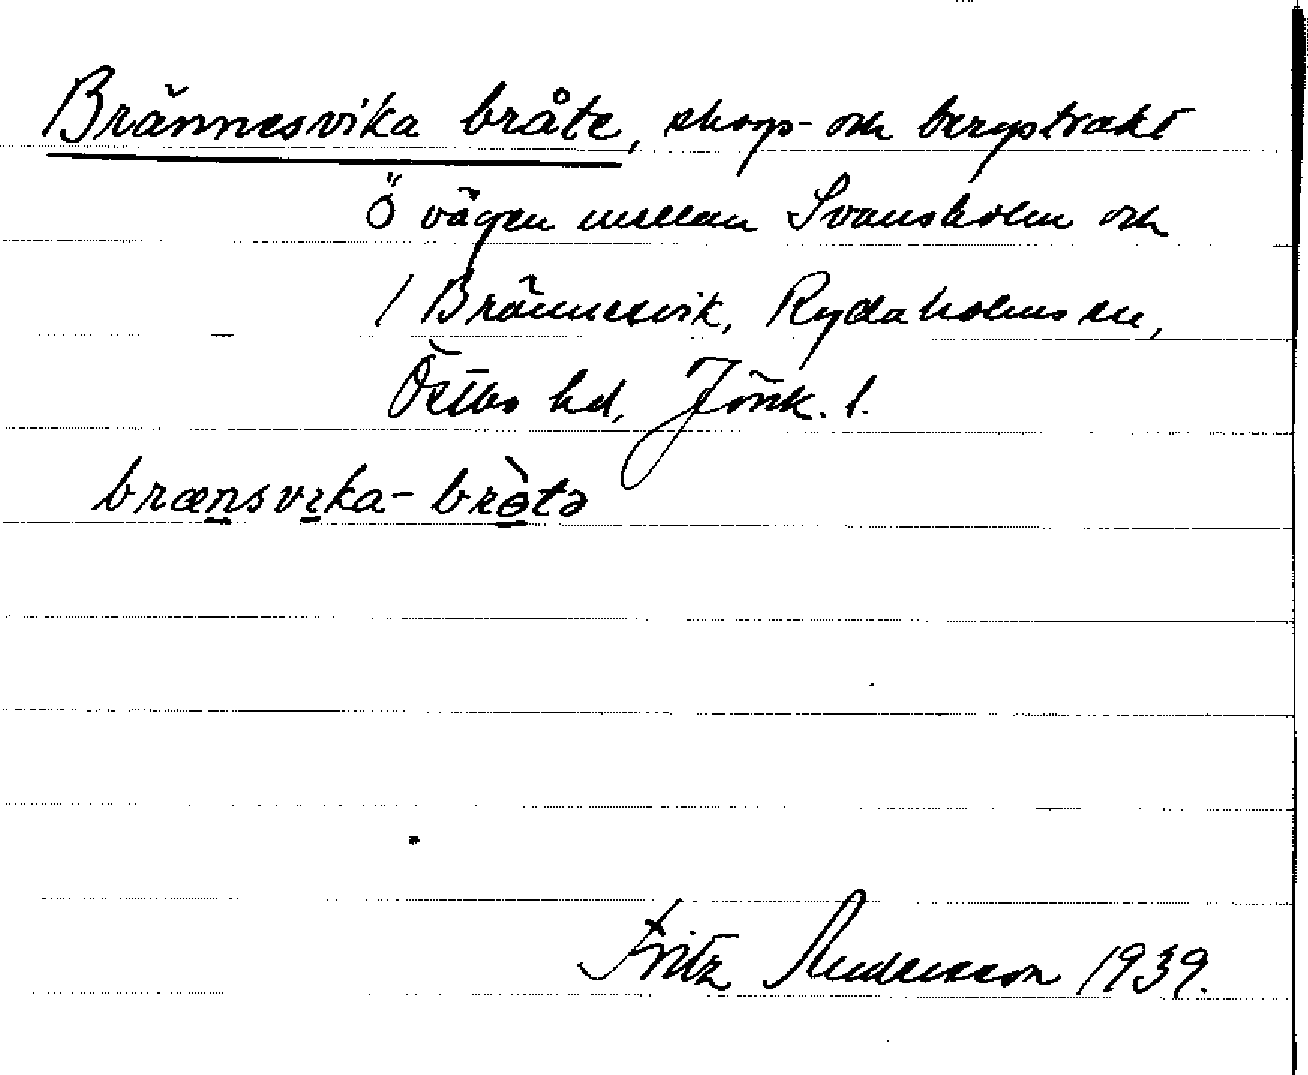 Brännesvika bråte, skogs- och bergstrakt
Ö vägen mellan Svansholm och
/ Brännesvik, Rydaholms sn,
Östbo hd, Jönk. l.
brænsvıka- bròtə
Fritz Andersson 1939.